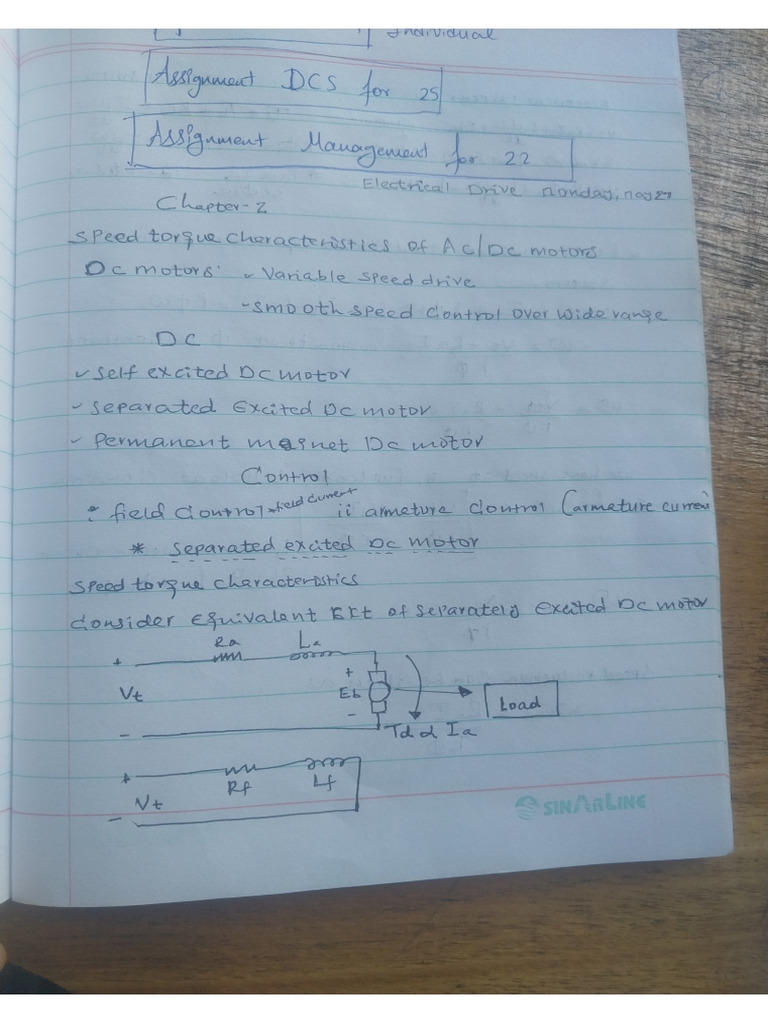 Individual
Assignment DCS for 25
Assignment - Management for 22
Electrical Drive Monday, may 27
Chapter-2
Speed torque characteristics of Ac/Dc motors
Dc motors: - Variable speed drive
-smooth speed control over wide range
DC
✓ Self excited DC motor
- Separated Excited DC motor
✓ Permanent magnet DC motor
Control
i field Control field current ii armeture control (armeture current
* Separated excited DC motor
Speed torque characteristics
Consider Equivalent Ckt of Separately Excited DC motor
Ra La
+
Vt + Eb - Load
- Td α Ia
+
Vt Rf Lf
-
SINARLINE